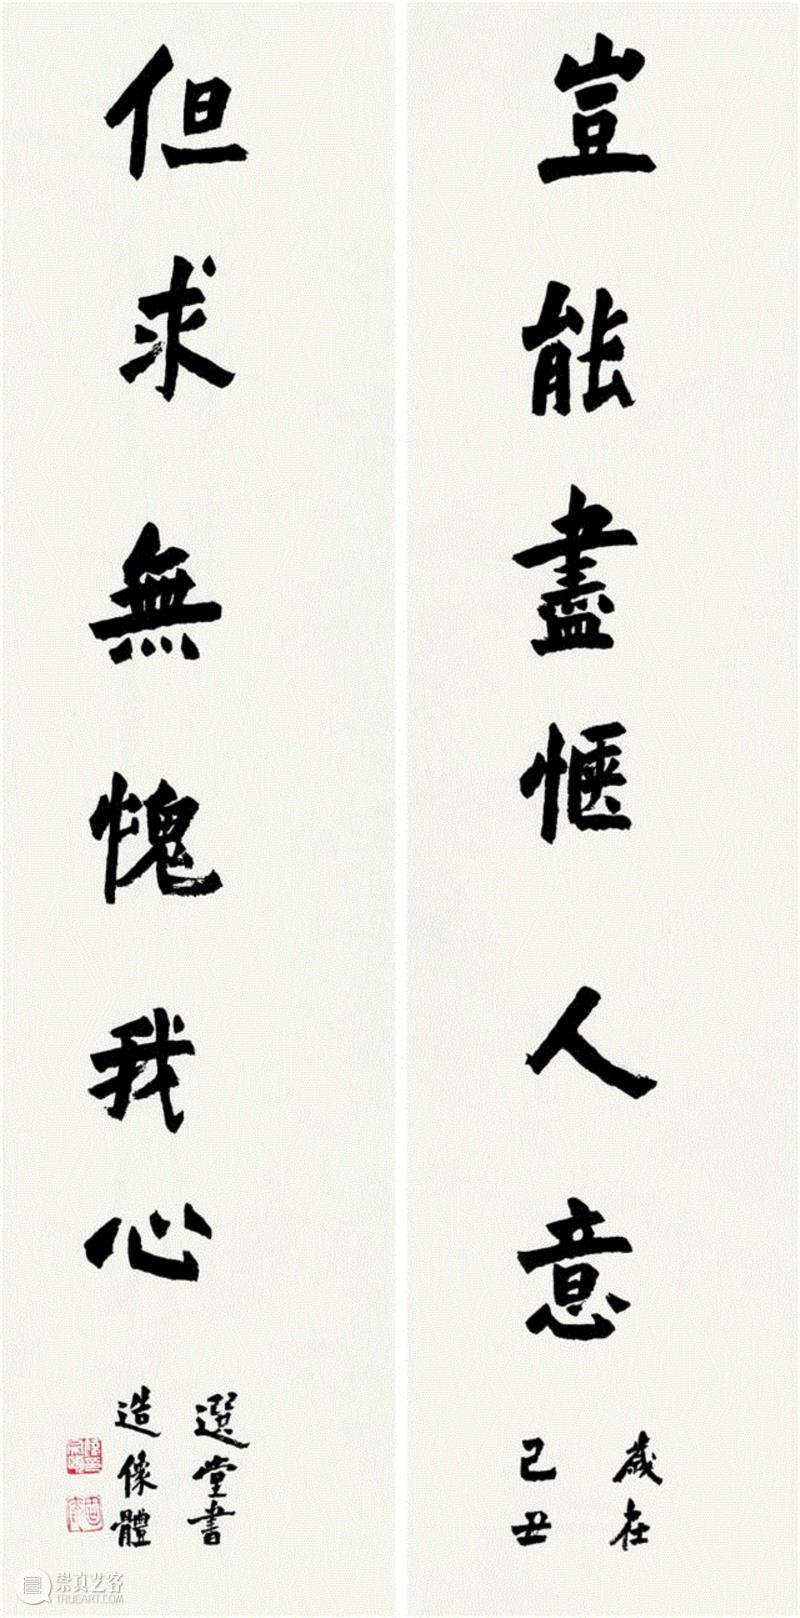 豈能盡愜人意
歲在
己丑
但求無愧我心
選堂書
造像體
崇真艺客
WWW.TRUEART.COM